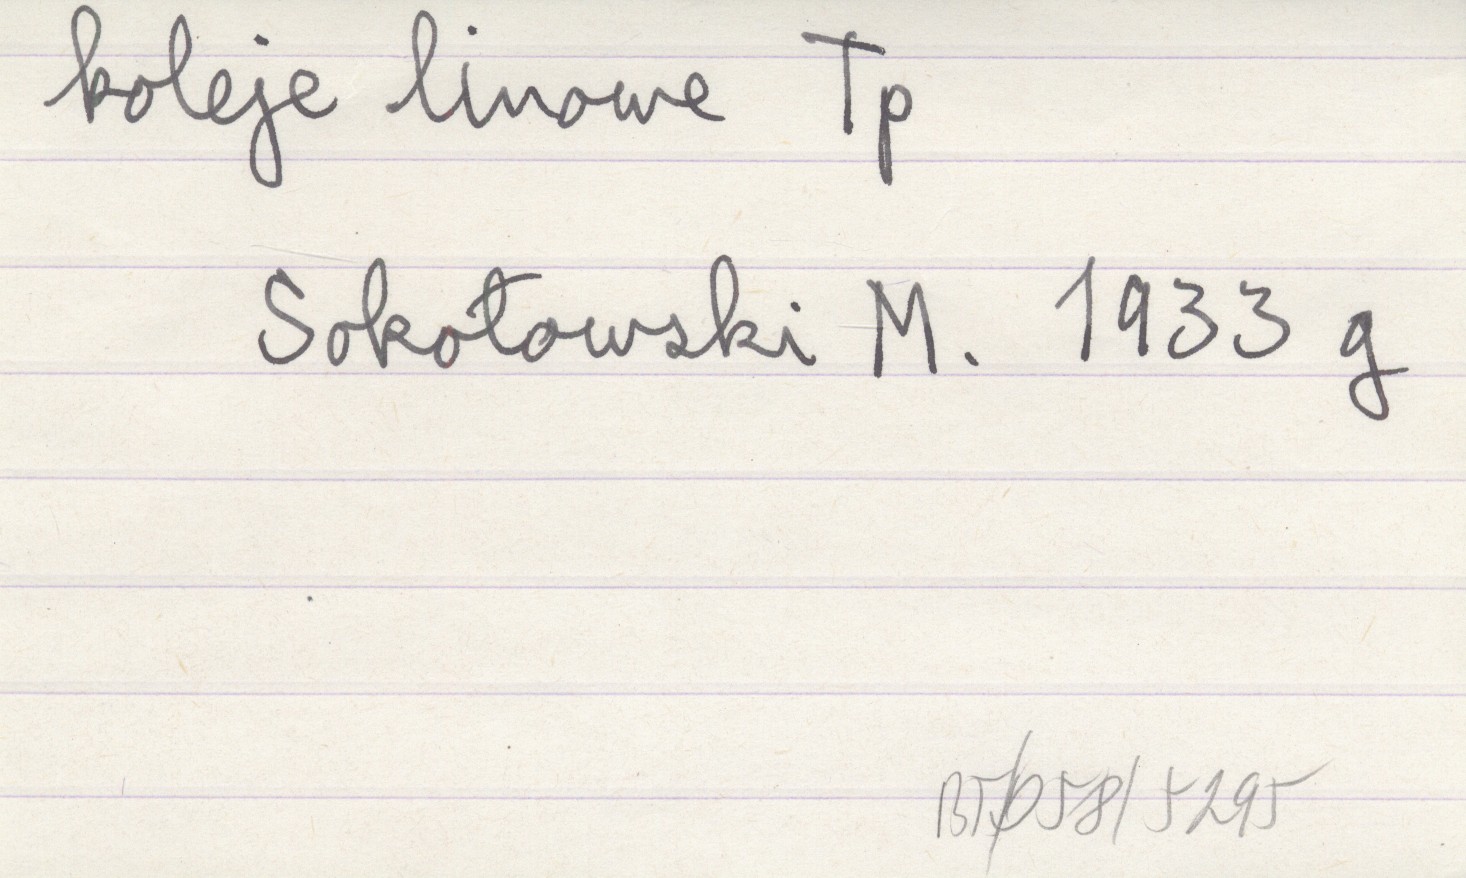 koleje linowe Tp
Sokołowski M. 1933 g
058/5295